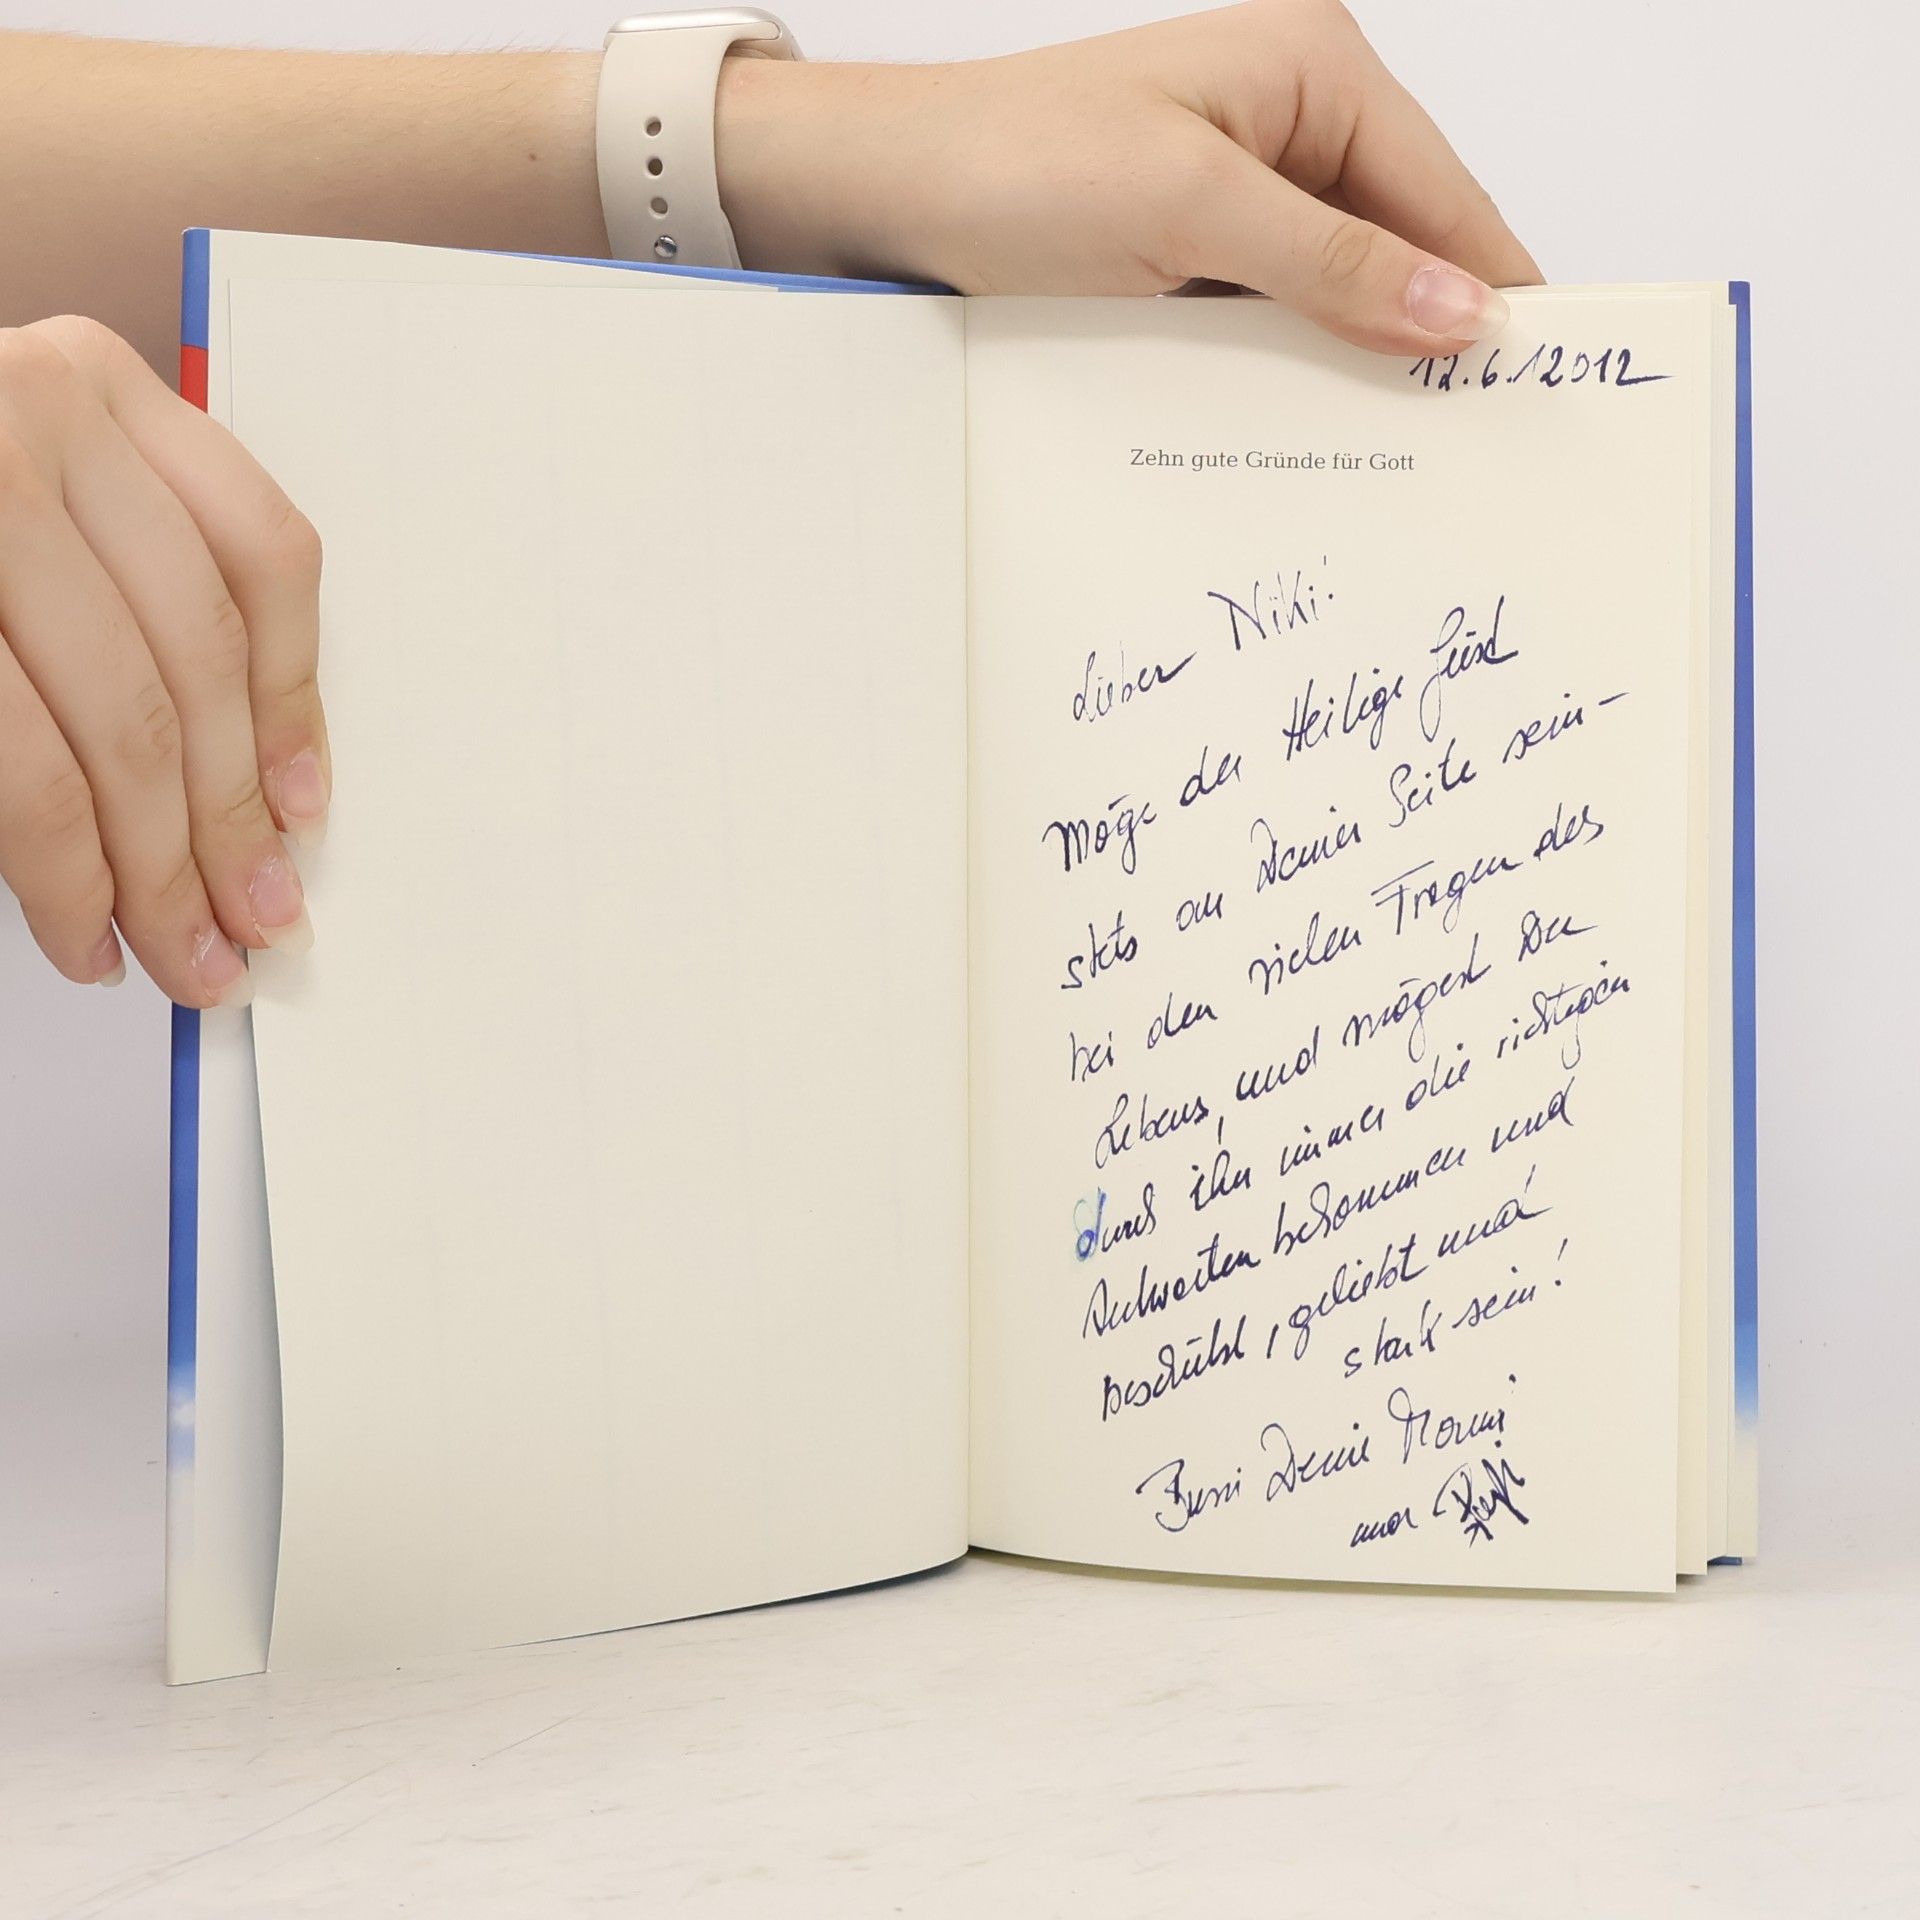 12.6.2012
Zehn gute Gründe für Gott
Lieber Niki!
Möge der Heilige Geist
stets an Deiner Seite sein –
bei den vielen Fragen des
Lebens, und mögest Du
durch ihn immer die richtigen
Antworten bekommen und
beschützt, geliebt und
stark sein!
Bussi Deine Mami
und